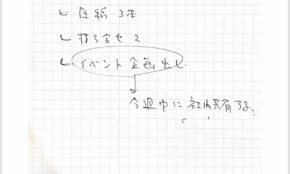 レ 原稿 3本
レ 打ち合せ 2
レ イベント企画出し
今週中に社内共有する。